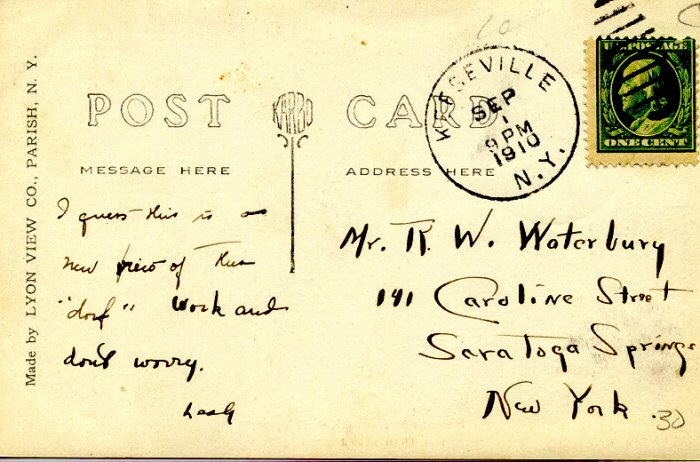 POST CARD
KARRO
MESSAGE HERE
ADDRESS HERE
Made by LYON VIEW CO., PARISH, N. Y.
KEESEVILLE
SEP
1
9 PM
1910
N.Y.
U.S. POSTAGE
ONE CENT
I guess this is a
new view of this
"dorf" Work and
don't worry.
Mr. R. W. Waterbury
141 Caroline Street
Saratoga Springs
New York
.30